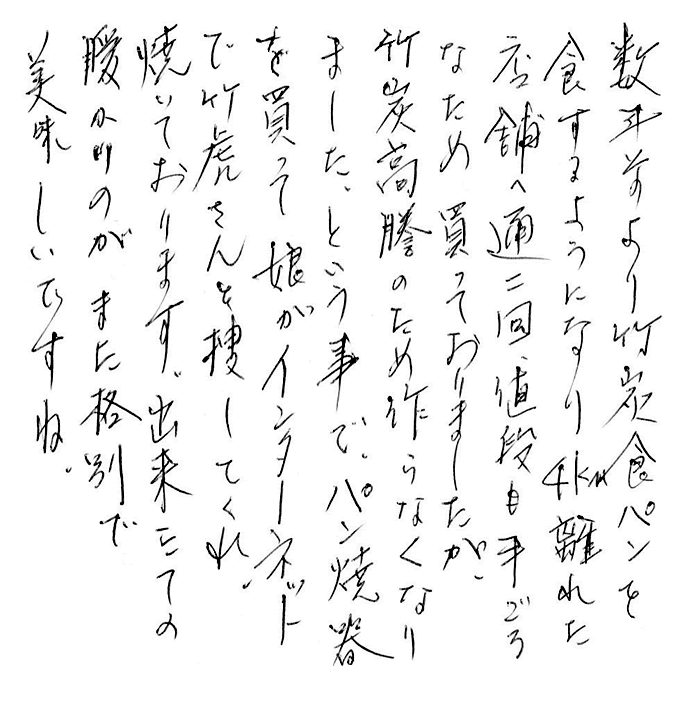 数年前より竹炭食パンを
食するようになり4km離れた
店舗へ週二回、値段も手ごろ
なため買っておりましたが、
竹炭高騰のため作らなくなり
ました、という事で、パン焼器
を買って娘がインターネット
で竹虎さんを捜してくれ、
焼いております。出来たての
暖かいのがまた格別で
美味しいですね。